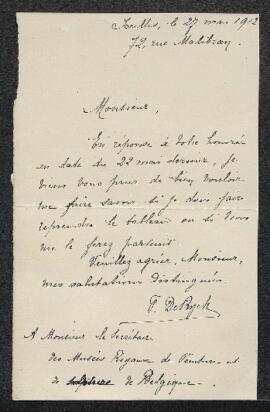 Ixelles, le 27 mai 1912
72, rue Malibran
Monsieur,
En réponse à votre honorée
en date du 22 mai dernier, je
viens vous prier de bien vouloir
me faire savoir si je dois faire
reprendre le tableau ou si vous
me le ferez parvenir
Veuillez agréer, Monsieur,
mes salutations distinguées
De Ryck
A Monsieur le Secrétaire
des Musées Royaux de Peinture et
de Sculpture de Belgique.